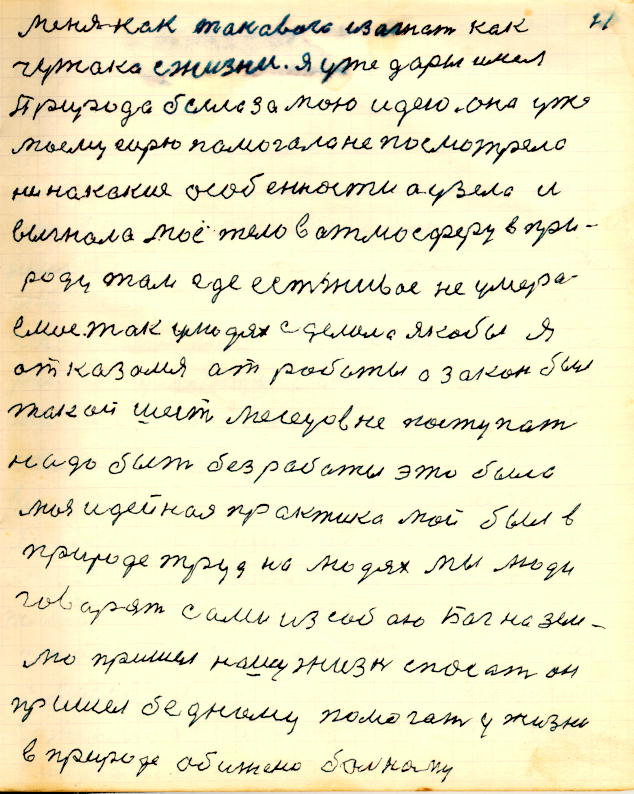 21
меня как такавого изагнат как
чужака с жизни. я уже дары имел
Природа была за мою идею. она уже
моему горю помогала не посмотрела
ни на какие особенности а узела и
выгнала моё тело в атмосферу в при-
роду там где есть живое не умера
емое. так у людях сделола якобы я
отказомя ат работы а закон был
такой шест месецов не поступат
надо быт без работы это была
моя идейная практика мой был в
природе труд на людях мы люди
говарят сами из собою Бог на зем-
лю пришел нашу жизн спосат он
пришел бедному помогат у жизни
в природе обижено болному